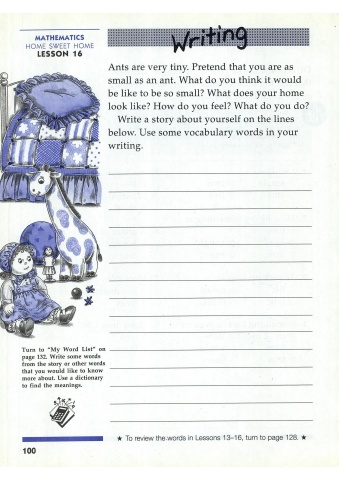 Writing
MATHEMATICS
HOME SWEET HOME
LESSON 16
Ants are very tiny. Pretend that you are as
small as an ant. What do you think it would
be like to be so small? What does your home
look like? How do you feel? What do you do?
Write a story about yourself on the lines
below. Use some vocabulary words in your
writing.
Turn to "My Word List" on
page 132. Write some words
from the story or other words
that you would like to know
more about. Use a dictionary
to find the meanings.
★ To review the words in Lessons 13–16, turn to page 128. ★
100